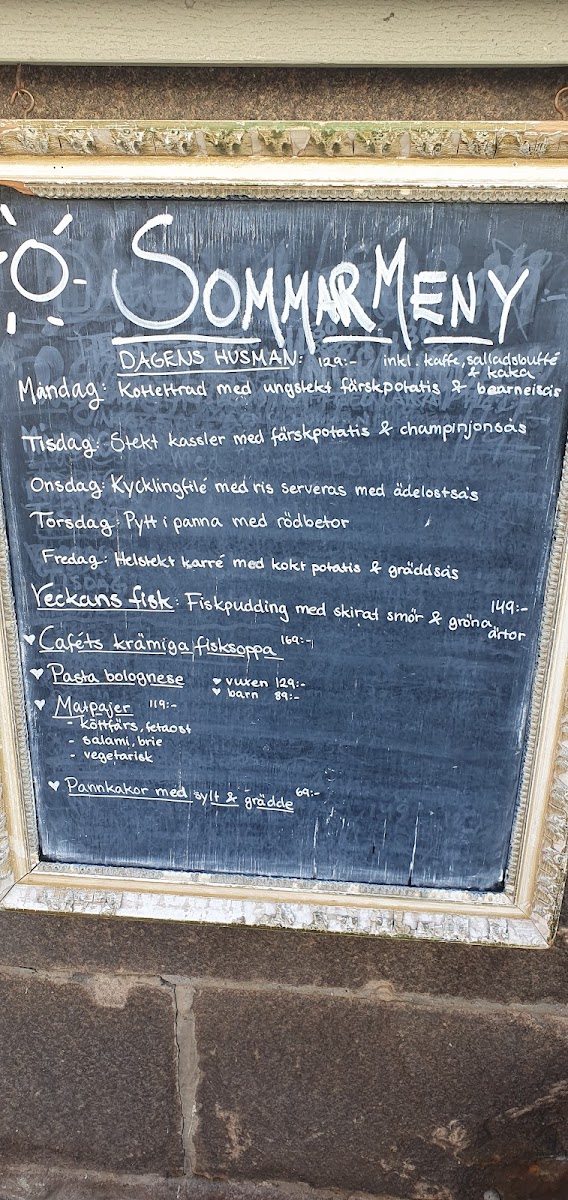 SOMMARMENY
DAGENS HUSMAN: 129:- inkl. kaffe, salladsbuffé
& kaka
Måndag: Kotlettrad med ungstekt färskpotatis & bearneisås
Tisdag: Stekt kassler med färskpotatis & champinjonsås
Onsdag: Kycklingfilé med ris serveras med ädelostsås
Torsdag: Pytt i panna med rödbetor
Fredag: Helstekt karré med kokt potatis & gräddsås
Veckans fisk: Fiskpudding med skirat smör & gröna 149:-
ärtor
Caféts krämiga fisksoppa 169:-
Pasta bolognese
♥ vuxen 129:-
♥ barn 89:-
Matpajer 119:-
- köttfärs, fetaost
- salami, brie
- vegetarisk
Pannkakor med sylt & grädde 69:-